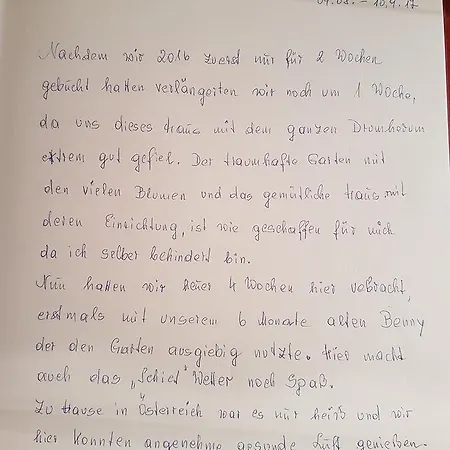 09.08. – 10.9.17
Nachdem wir 2016 zuerst nur für 2 Wochen
gebucht hatten verlängerten wir noch um 1 Woche,
da uns dieses Haus mit dem ganzen Drumherum
extrem gut gefiel. Der traumhafte Garten mit
den vielen Blumen und das gemütliche Haus mit
deren Einrichtung, ist wie geschaffen für mich
da ich selber behindert bin.
Nun hatten wir heuer 4 Wochen hier vebracht,
erstmals mit unserem 6 Monate alten Benny
der den Garten ausgiebig nutzte. Hier macht
auch das „Schiet" Wetter noch Spaß.
Zu Hause in Österreich war es nur heiß und wir
hier konnten angenehme gesunde Luft genießen.